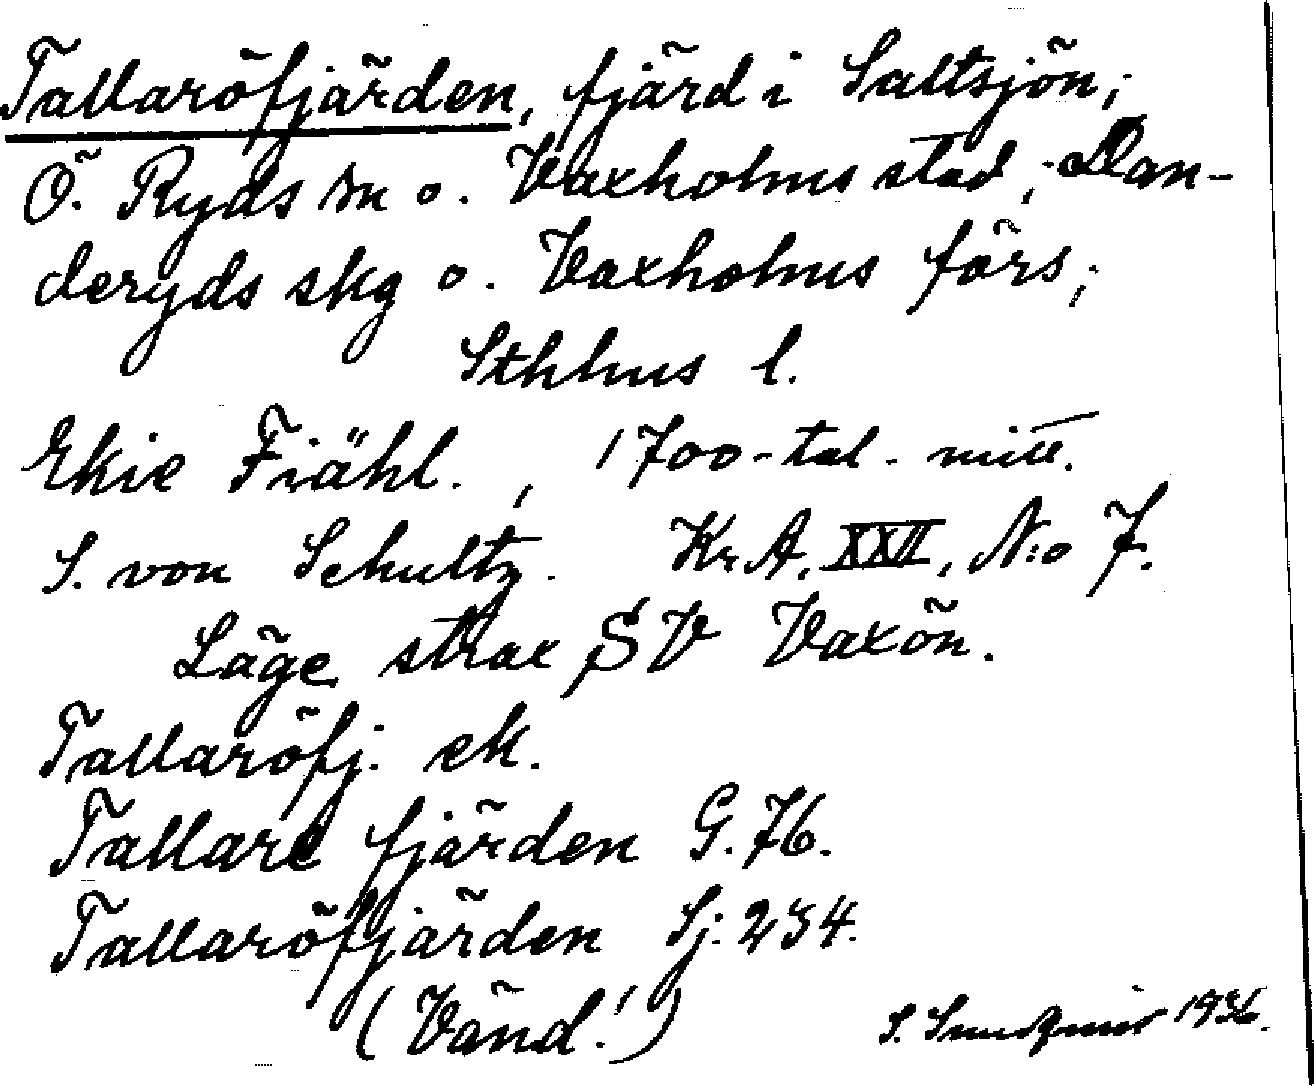 Tallaröfjärden, fjärd i Saltsjön;
Ö. Ryds sn o. Vaxholms stad; Dan-
deryds skg o. Vaxholms förs;
Sthlms l.
Ekie Fiähl., 1700-tal. mitt.
S. von Schultz. Kr. A. XXII, N:o 7.
Läge strax SV Vaxön.
Tallaröfj. ek.
Tallare fjärden G. 76.
Tallaröfjärden Sj. 234.
(Vänd!)
S. Sundquist 1936.